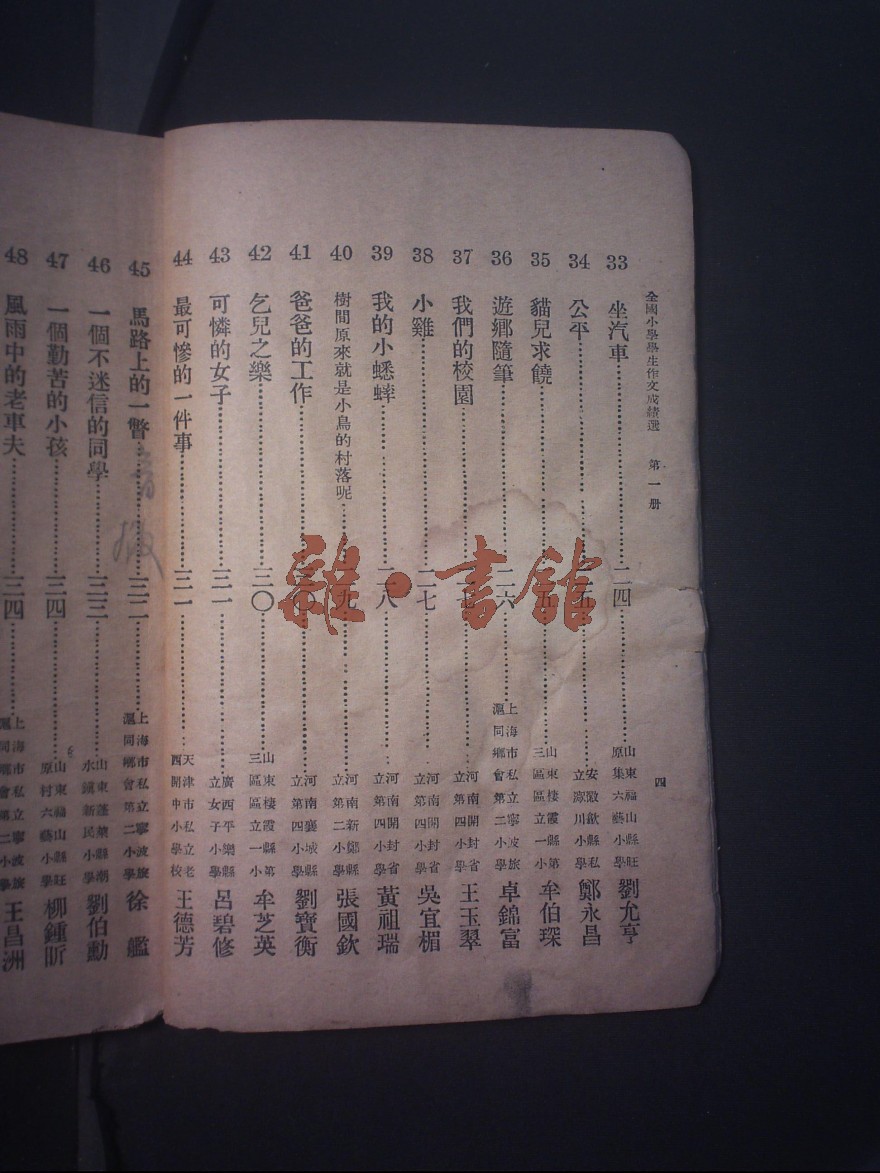 全國小學學生作文成績選 第一册
四
33 坐汽車 二四 山東福山縣旺原集六藝小學 劉允亨
34 公平 二五 安徽歙縣私立 川小學 鄭永昌
35 貓兒求饒 二五 山東棲霞縣第三區區立一小學 牟伯琛
36 遊鄉隨筆 二六 上海市私立寧波旅滬同鄉會第二小學 卓錦富
37 我們的校園 二七 河南開封省立第四小學 王玉翠
38 小雞 二七 河南開封省立第四小學 吳宜楣
39 我的小蟋蟀 二八 河南開封省立第四小學 黃祖瑞
40 樹間原來就是小鳥的村落呢 二九 河南新鄭縣立第二小學 張國欽
41 爸爸的工作 三〇 河南襄城縣立第四小學 劉寶衡
42 乞兒之樂 三〇 山東棲霞縣第三區區立一小學 牟芝英
43 可憐的女子 三一 廣西平樂縣立女子小學 呂碧修
44 最可慘的一件事 三一 天津市私立老西開中小學校 王德芳
45 馬路上的一瞥 三二 上海市私立寧波旅滬同鄉會第二小學 徐艦
46 一個不迷信的同學 三三 山東蓬萊縣潮水鎮新民小學 劉伯勳
47 一個勤苦的小孩 三四 山東福山縣旺原村六藝小學 柳鍾昕
48 風雨中的老車夫 三四 上海市私立寧波旅滬同鄉會第二小學 王昌洲
雜·書館